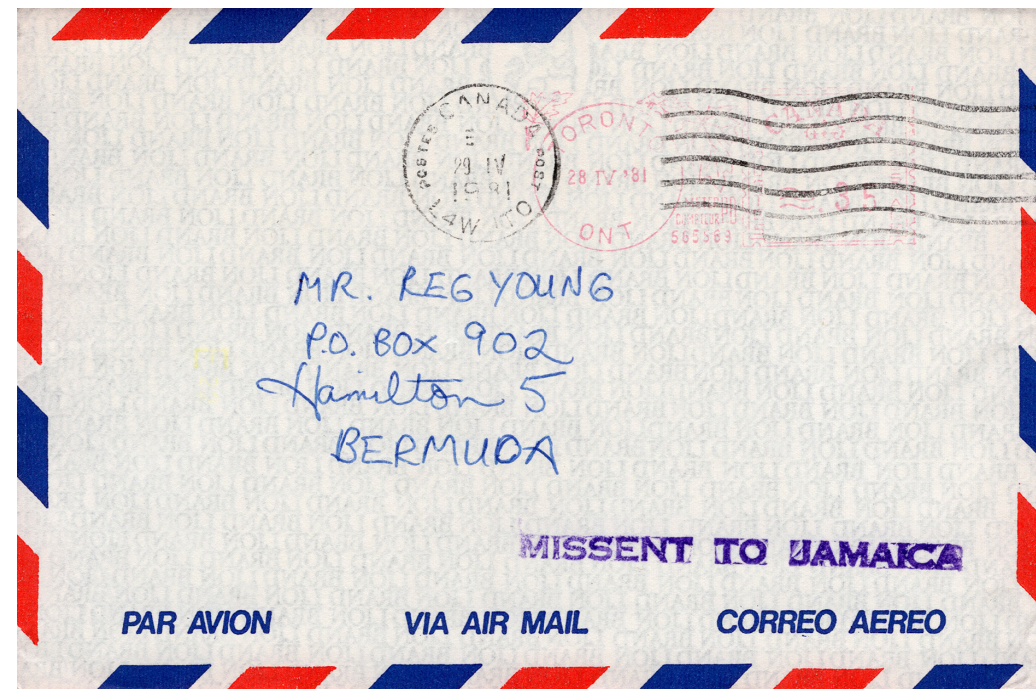 POSTES CANADA POST
29 IV
1981
L4W 1T0
TORONTO
28 IV '81
ONT
585589
35
MR. REG YOUNG
P.O. BOX 902
Hamilton 5
BERMUDA
MISSENT TO JAMAICA
PAR AVION VIA AIR MAIL CORREO AEREO